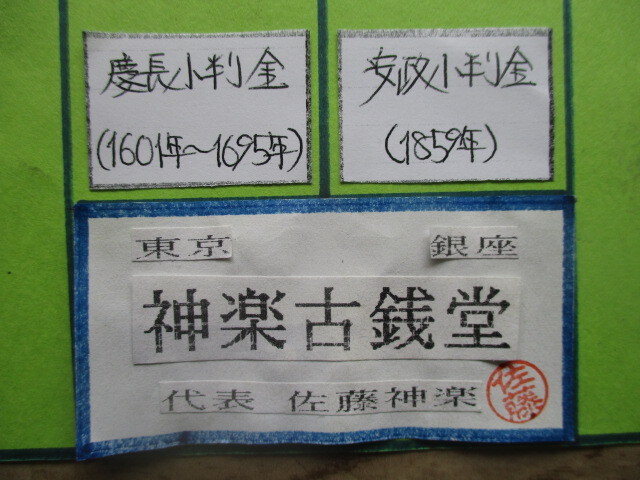 慶長小判金
(1601年～1695年)
安政小判金
(1859年)
東京 銀座
神楽古銭堂
代表 佐藤神楽
佐藤